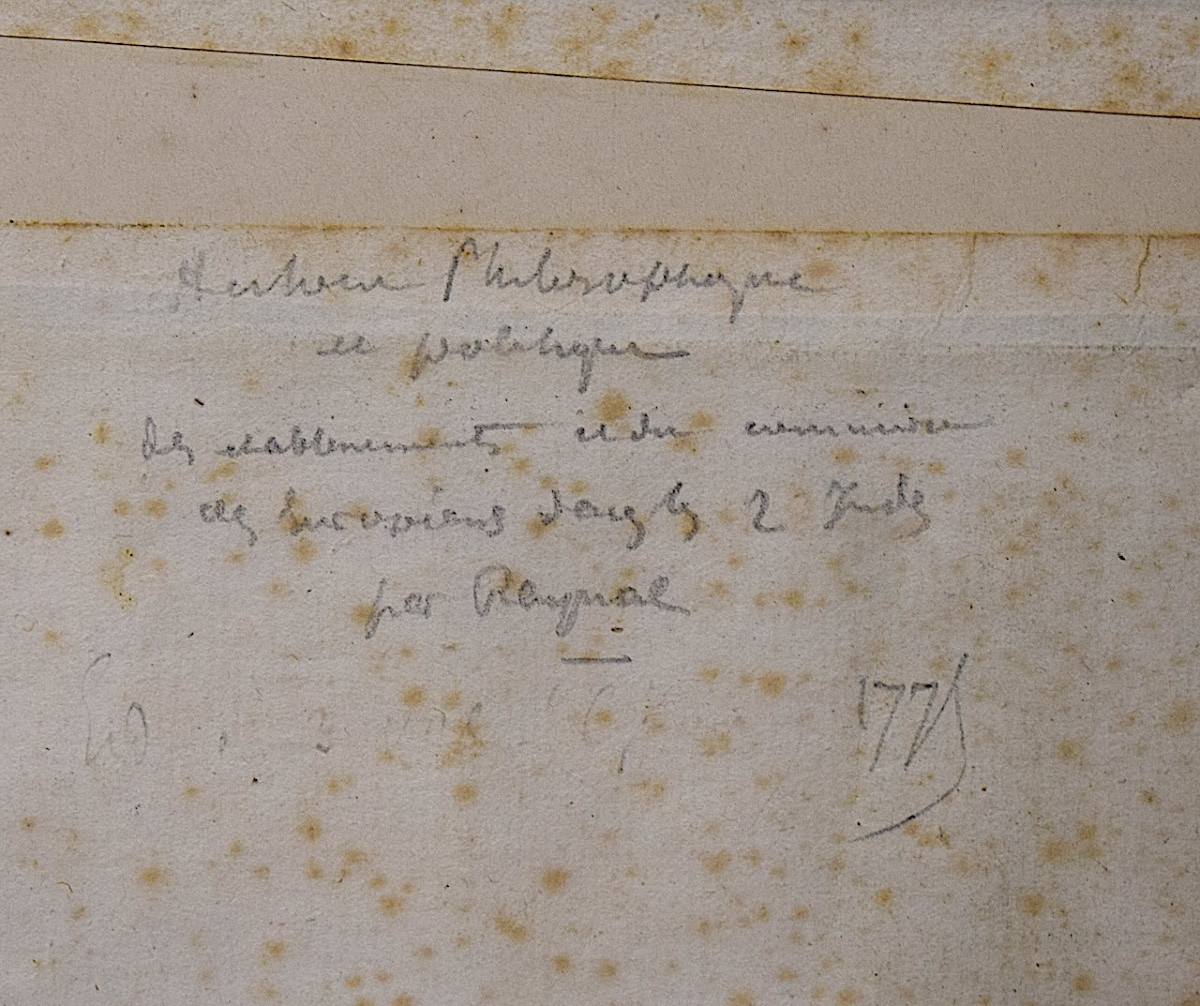 Histoire Philosophique
et politique
des etablissements et du commerce
des Européens dans les 2 Indes
par Raynal
1775